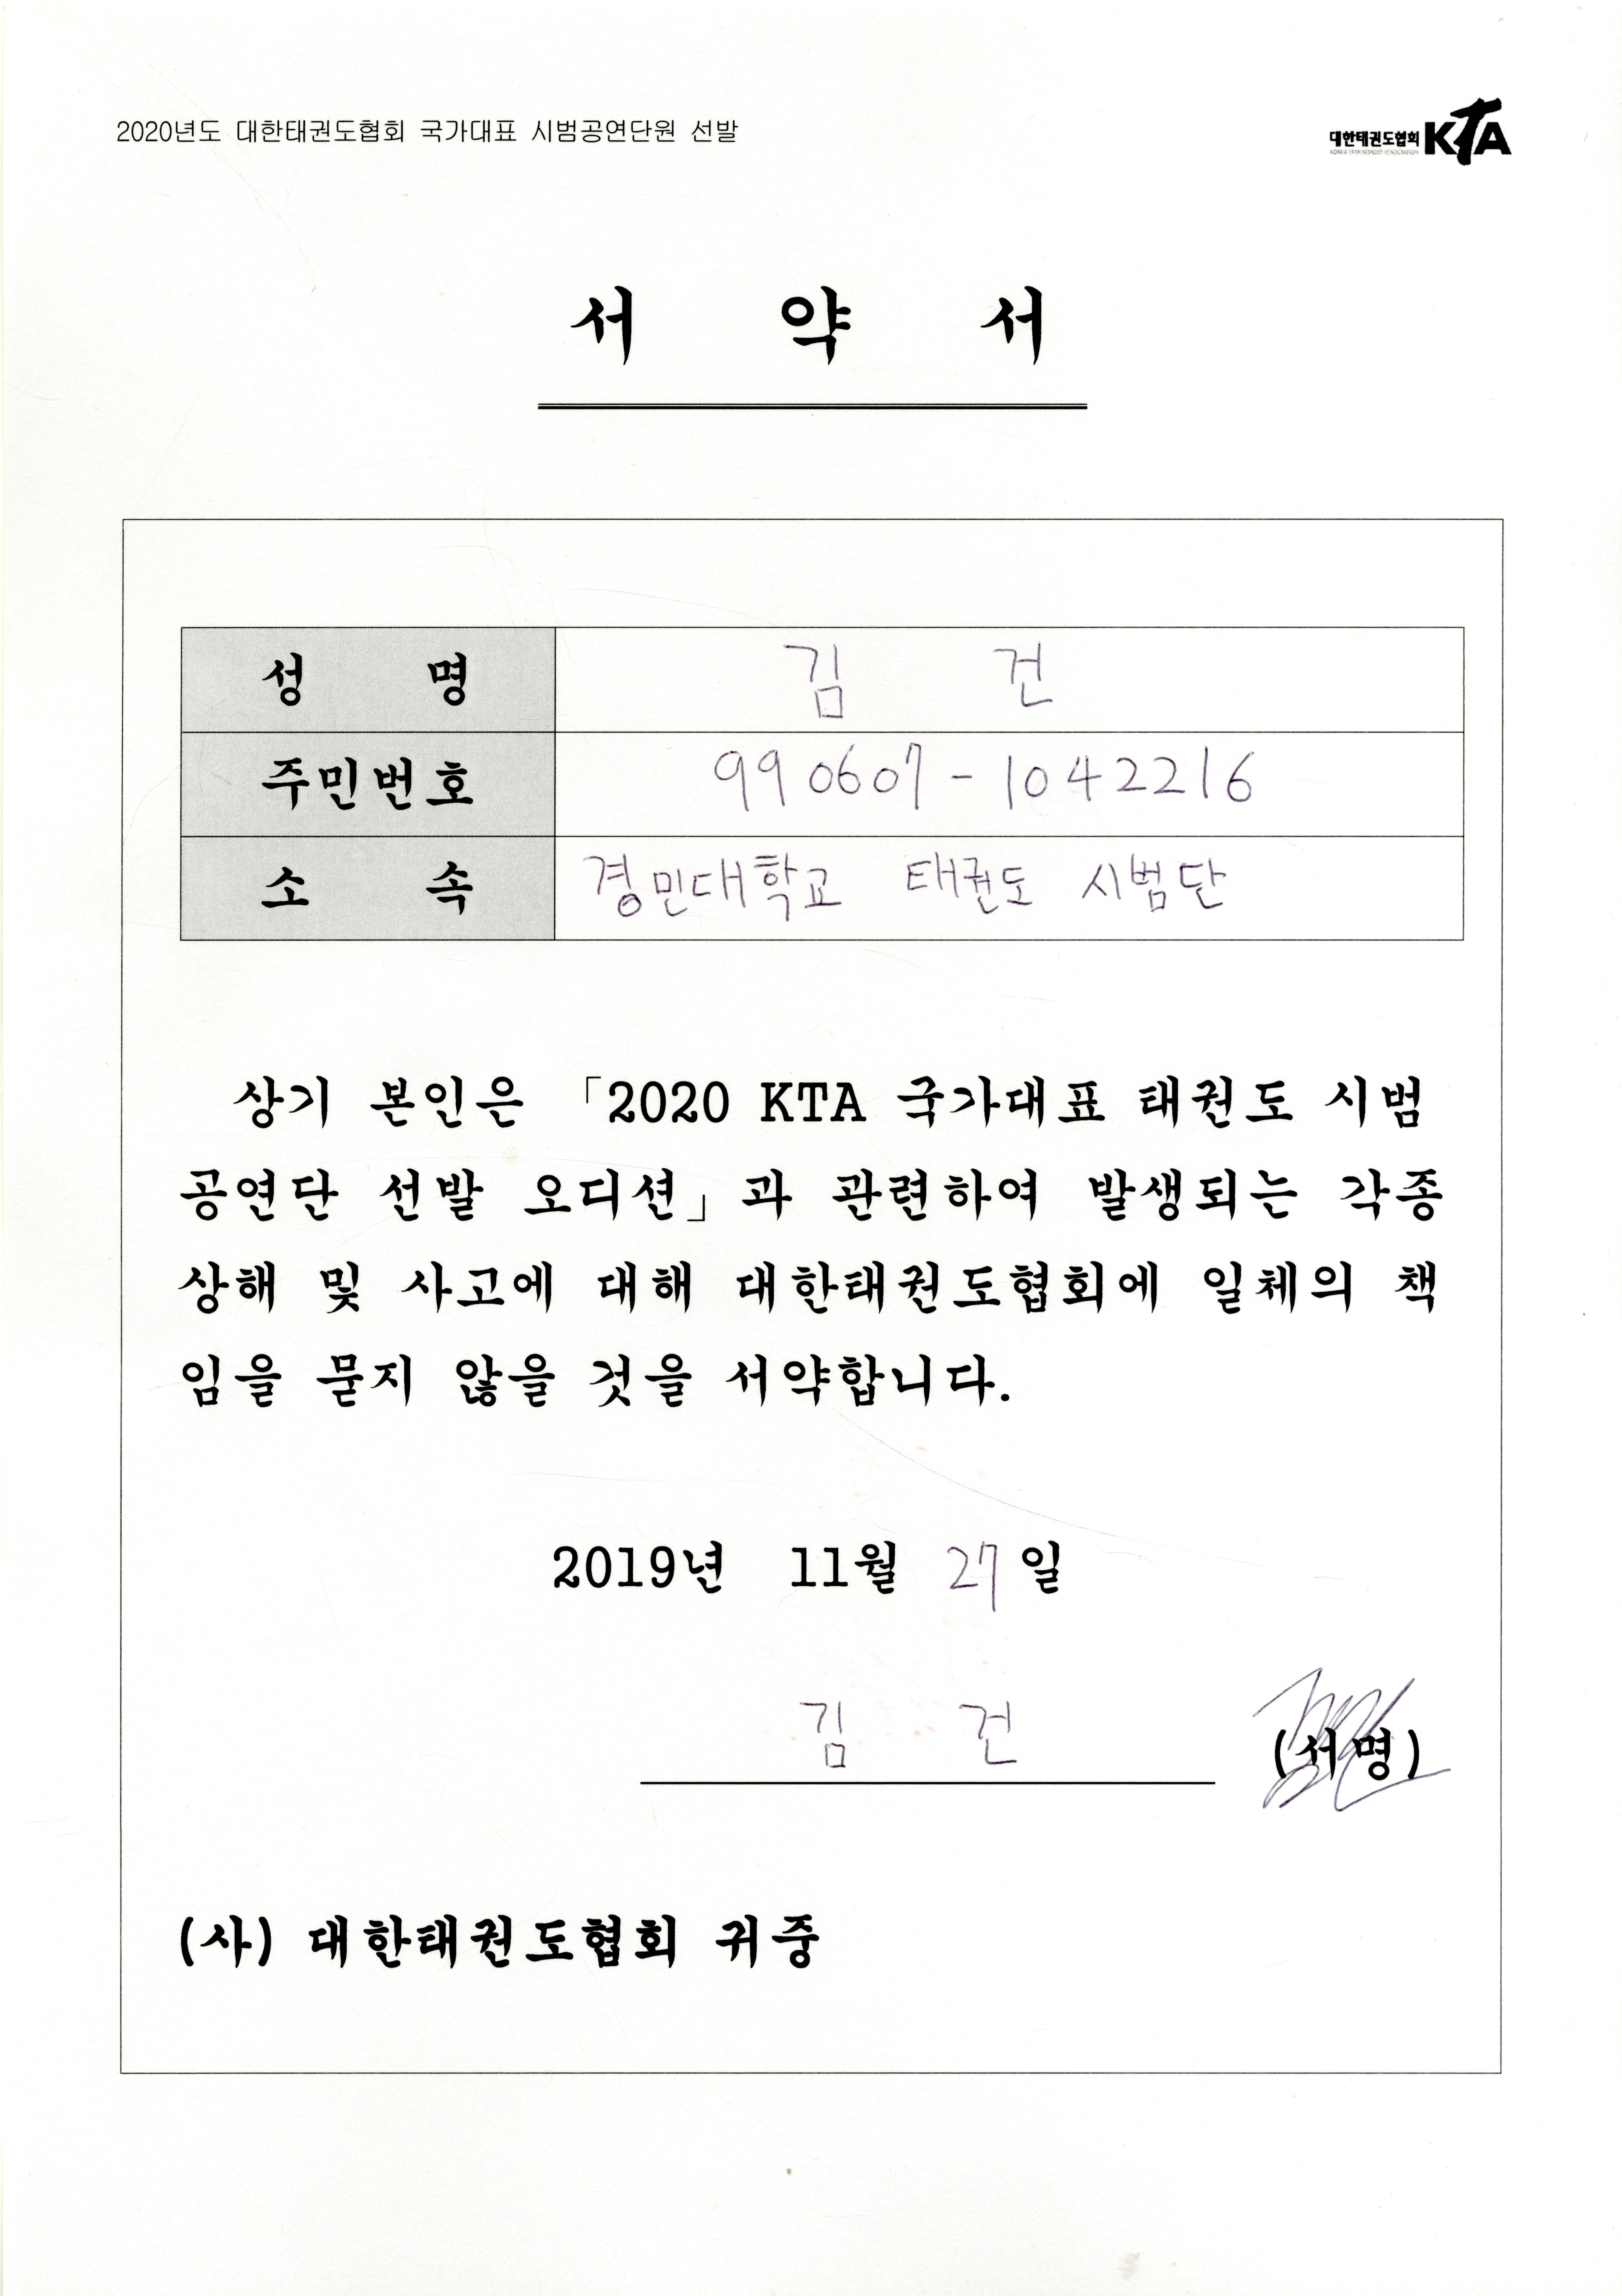 2020년도 대한태권도협회 국가대표 시범공연단원 선발
대한태권도협회 KTA
KOREA TAEKWONDO ASSOCIATION
서 약 서
성 명 김 건
주민번호 990607-1042216
소 속 경민대학교 태권도 시범단
상기 본인은 「2020 KTA 국가대표 태권도 시범
공연단 선발 오디션」과 관련하여 발생되는 각종
상해 및 사고에 대해 대한태권도협회에 일체의 책
임을 묻지 않을 것을 서약합니다.
2019년 11월 27일
김 건 (서명)
(사) 대한태권도협회 귀중